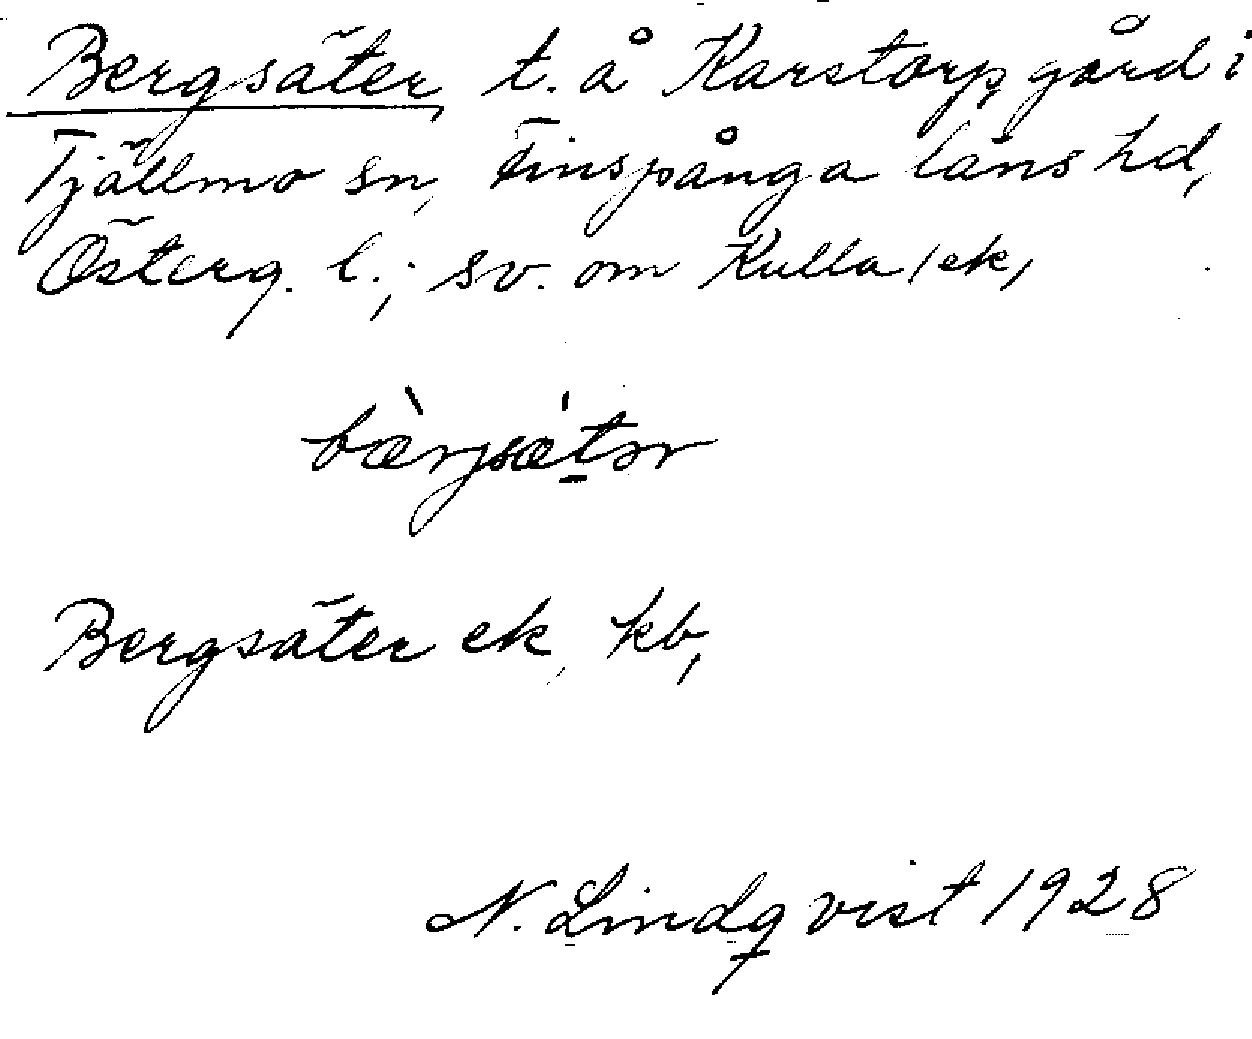 Bergsäter, t. å Karstorp gård i
Tjällmo sn, Finspånga läns hd,
Österg. l.; sv. om Kulla /ek,
bæ̀rjsæ̍tər
Bergsäter ek, kb,
N. Lindqvist 1928